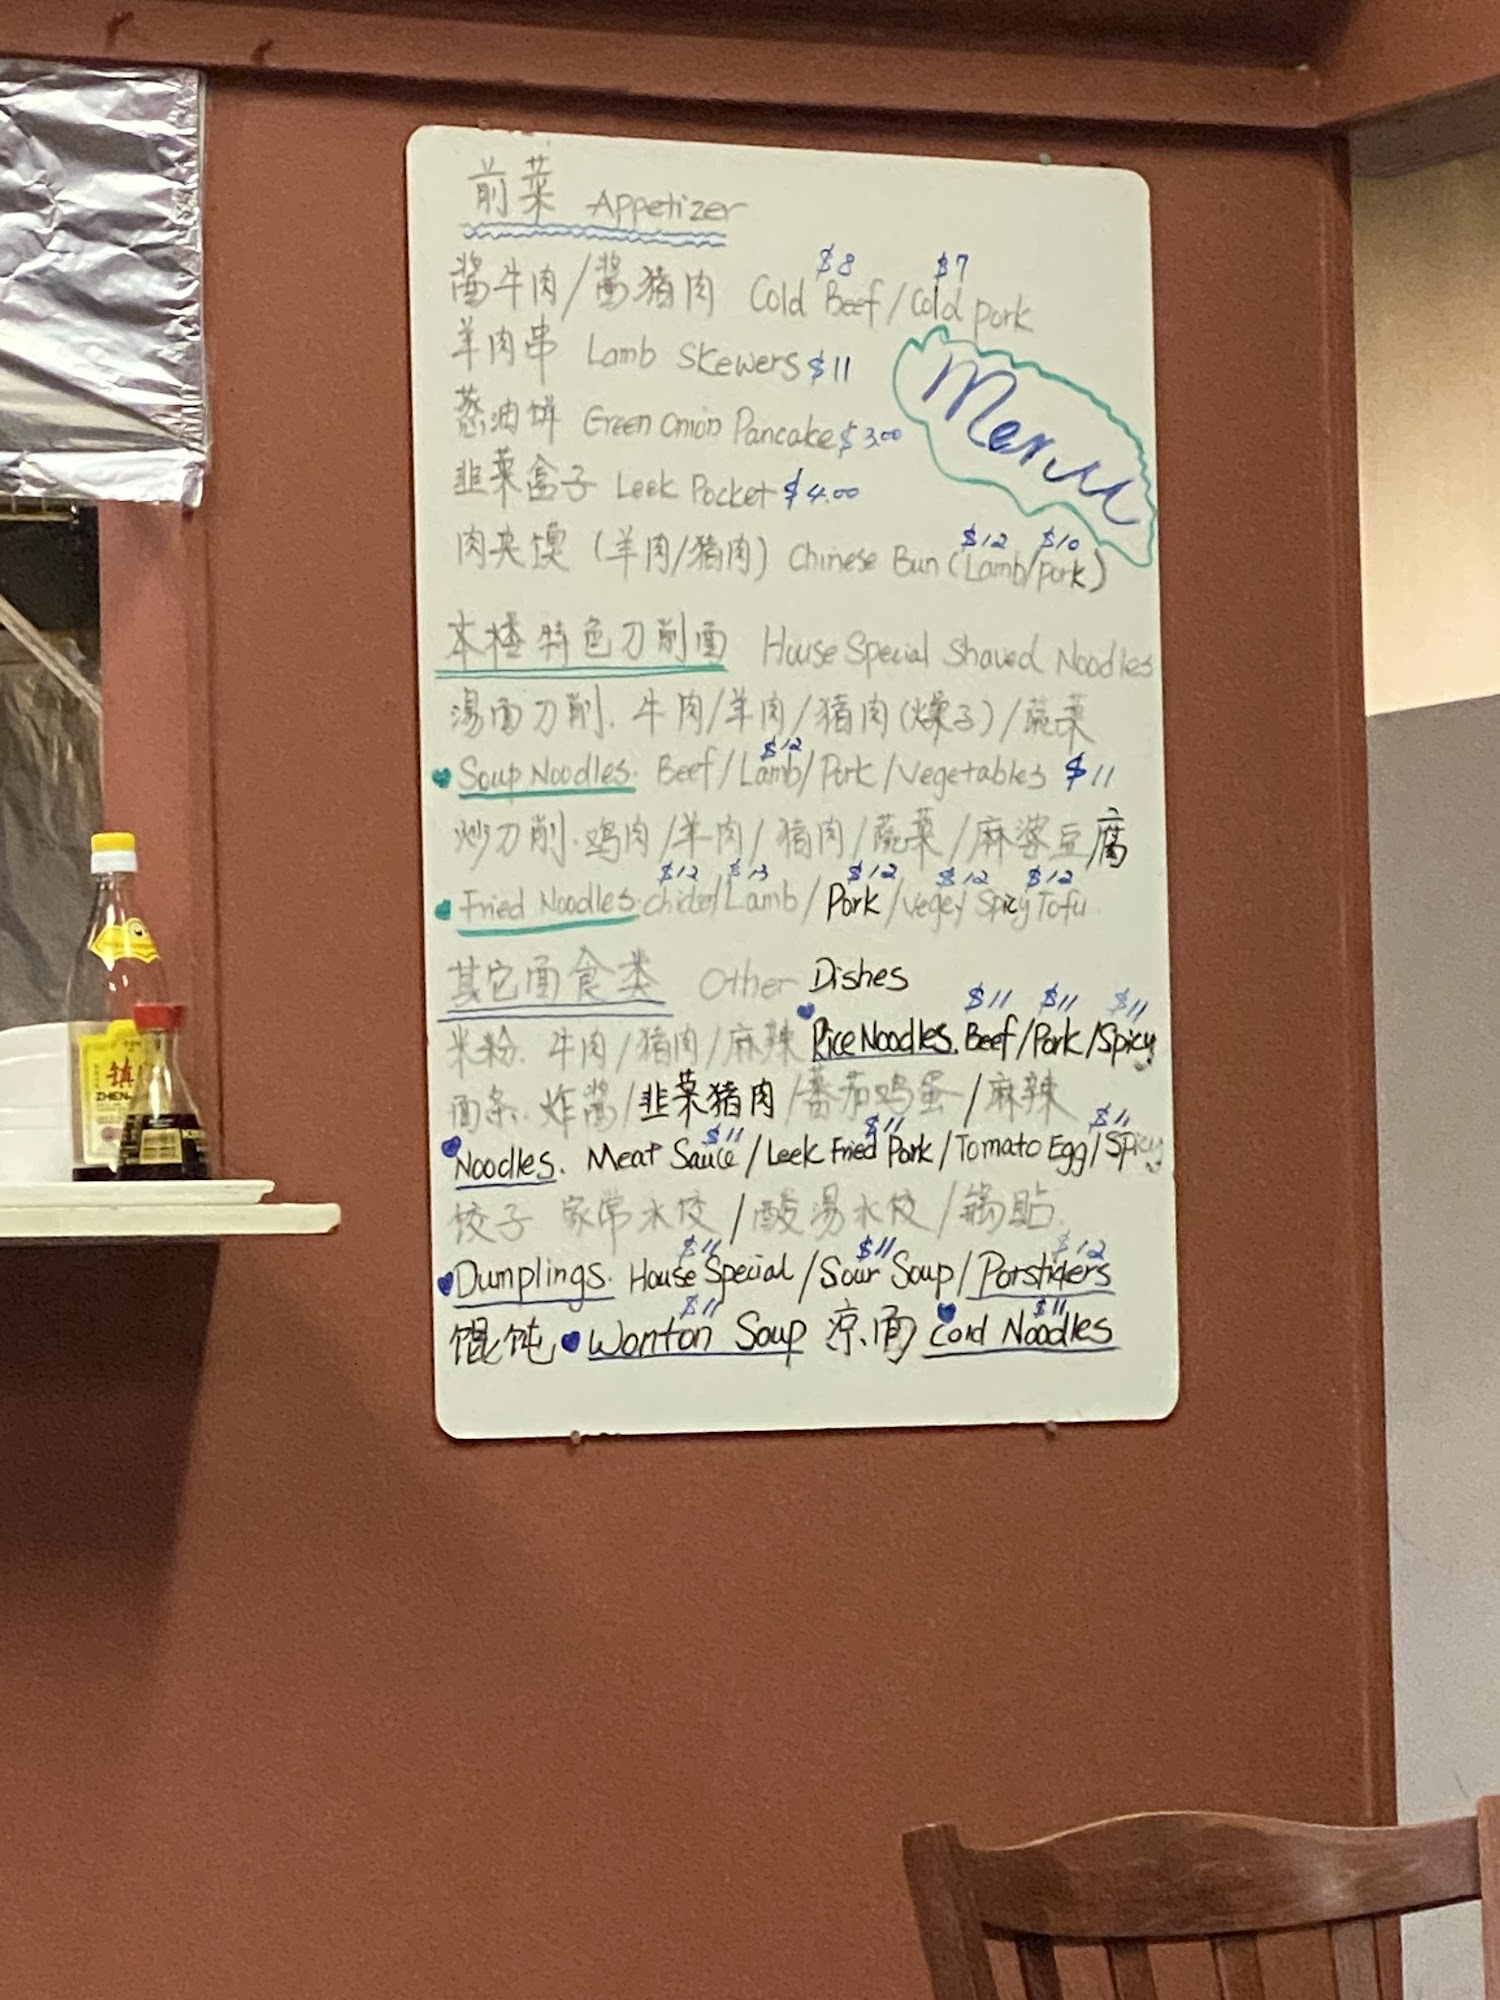 前菜 Appetizer
$8 $7
酱牛肉/酱猪肉 Cold Beef/Cold pork
羊肉串 Lamb Skewers $11
葱油饼 Green Onion Pancake $3.00
Menu
韭菜盒子 Leek Pocket $4.00
$12 $10
肉夹馍 (羊肉/猪肉) Chinese Bun (Lamb/pork)
本楼特色刀削面 House Special Shaved Noodles
汤面刀削. 牛肉/羊肉/猪肉(燥子)/蔬菜
$12
Soup Noodles. Beef/Lamb/Pork/Vegetables $11
炒刀削. 鸡肉/羊肉/猪肉/蔬菜/麻婆豆腐
$12 $13 $12 $12 $12
Fried Noodles. /Lamb/Pork/Vege/ Spicy Tofu
其它面食类 Other Dishes
$11 $11 $11
米粉. 牛肉/猪肉/麻辣 Rice Noodles. Beef/Pork/Spicy
面条. 炸酱/韭菜猪肉/蕃茄鸡蛋/麻辣
$11 $11 $11
Noodles. Meat Sauce/Leek Fried Pork/Tomato Egg/Spicy
饺子 家常水饺/酸汤水饺/锅贴.
$11 $11 $12
Dumplings. House Special/Sour Soup/
$11 $11
馄饨 Wonton Soup 凉面 Cold Noodles
镇
ZHEN